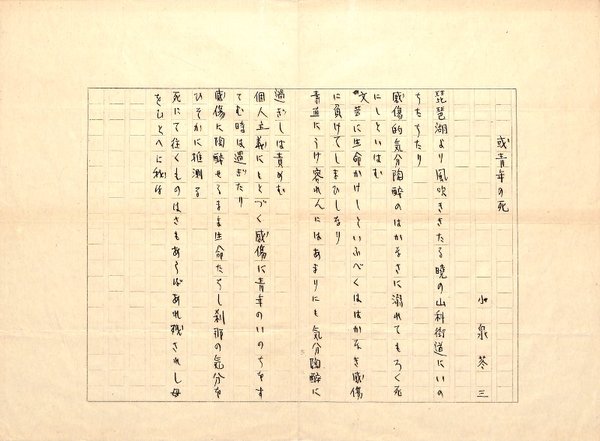 或青年の死
小泉苳三
琵琶湖より風吹ききたる暁の山科街道にいの
ちをちたり
感傷的気分陶酔のはかなさに溺れてもろく死
にしといはむ
文芸に生命かけしといふべくははかなき感傷
に負けてしまひしなり
青並にうけ容れんにはあまりにも気分陶酔に
過ぎしは責めむ
個人主義にもとづく感傷に青年のいのちをす
てむ時は過ぎたり
感傷に陶酔せるまま生命たちし刹那の気分を
ひそかに推測る
死にて往くものはさもあらばあれ残されし母
をひとへに